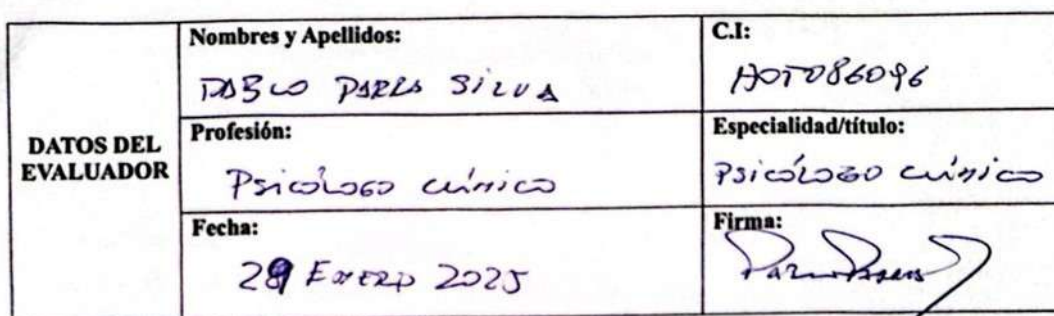 DATOS DEL
EVALUADOR
Nombres y Apellidos:
PABLO PARRA SILVA
C.I:
Profesión:
Psicólogo clínico
Especialidad/título:
Psicólogo clínico
Fecha:
29 Enero 2025
Firma: